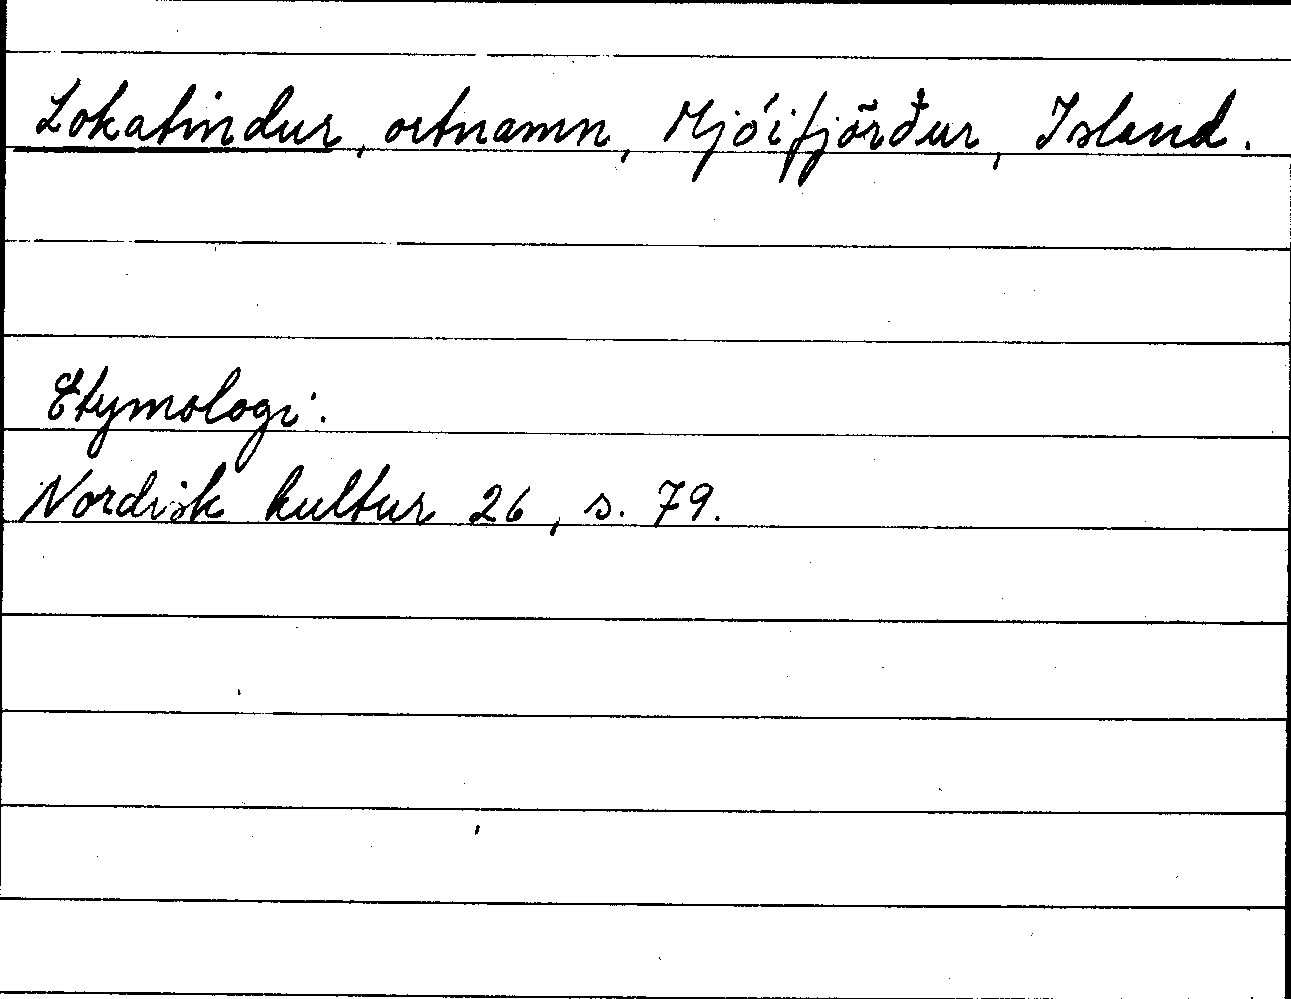 Lokatindur, ortnamn, Mjóifjörður, Island.
Etymologi.
Nordisk kultur 26, s. 79.